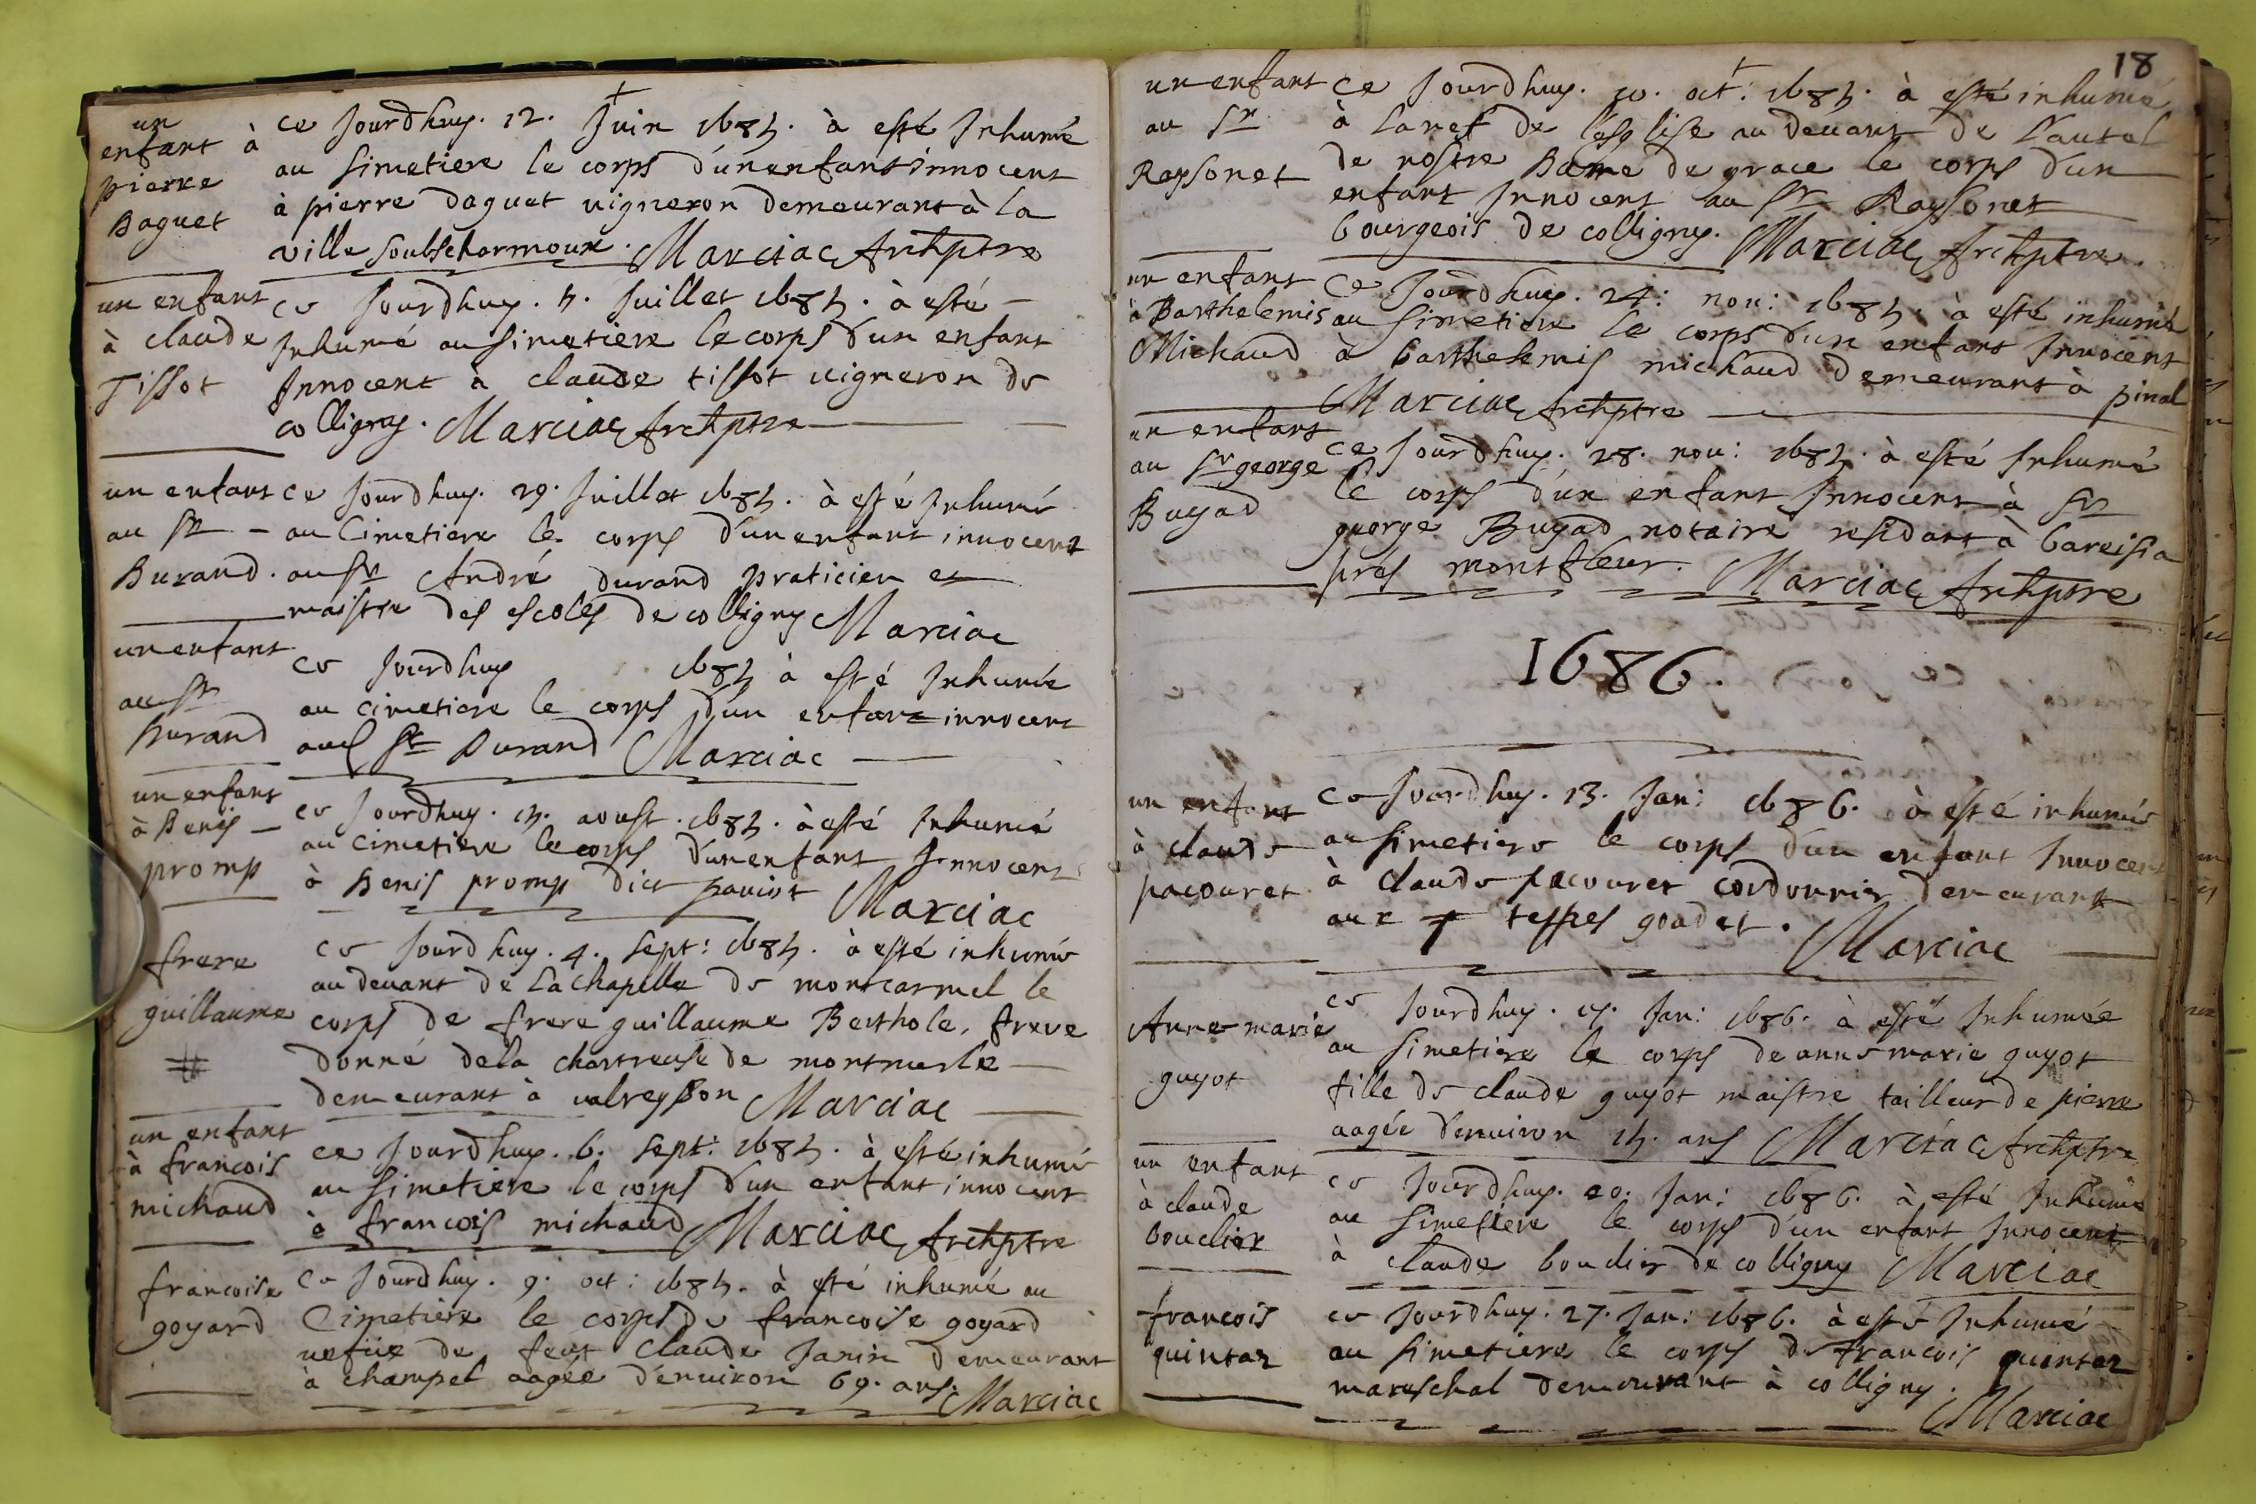 un
enfant à
pierre
Daguet
ce Jourdhuy. 12. Juin 1685. à esté Inhumé
au simetiere le corps d'un enfant innocent
à pierre daguet uigneron demeurant à la
ville soubscharmoux. Marciac Archptre
un enfant
à claude
Tissot
ce Jourdhuy. 5. Juillet 1685. à esté
Inhumé au simetiere le corps d'un enfant
Innocent à claude tissot uigneron de
colligny. Marciac Archptre
un enfant
au Sr
Durand.
ce Jourdhuy. 29. Juillet 1685. à esté Inhumé
au Cimetiere le corps d'un enfant innocent
au Sr André durand praticien et
maistre des escoles de colligny Marciac
un enfant
au Sr
Durand
ce Jourdhuy 1685 à esté Inhumé
au cimetiere le corps d'un enfant innocent
aud Sr Durand Marciac
un enfant
à Denis
promp
ce Jourdhuy. 15. aoust. 1685. à esté Inhumé
au cimetiere le corps d'un enfant Innocent
à Denis promp dict Marciac
frere
guillaume
ce Jourdhuy. 4. sept: 1685. à esté inhumé
au deuant de la chapelle de montcarmel le
corps de frere guillaume Berthole, frere
donné de la chartreuse de montmerle
demeurant à ualreysson Marciac
un enfant
à francois
michaud
ce Jourdhuy. 6. sept: 1685. à esté inhumé
au simetiere le corps d'un enfant innocent
à francois michaud Marciac Archptre
francoise
goyard
ce Jourdhuy. 9. oct: 1685. à esté inhumé au
Cimetiere le corps de francoise goyard
uefue de feut Claude Janin demeurant
à champel aagée d'enuiron 69. ans. Marciac
18
un enfant
au Sr
Raysonet
ce Jourdhuy. 10. oct: 1685. à esté inhumé
à la nef de l'esglise au deuant de l'autel
de nostre Dame de grace le corps d'un
enfant Innocent au Sr Raysonet
bourgeois de colligny. Marciac Archptre.
un enfant
à Barthelemis
Michaud
ce Jourdhuy. 24: nou: 1685. à esté inhumé
au simetiere le corps d'un enfant Innocent
à barthelemis michaud demeurant à pinal
Marciac Archptre
un enfant
au Sr george
Buyad
ce Jourdhuy. 28. nou: 1685. à esté Inhumé
le corps d'un enfant Innocent à Sr
george Buyad notaire residant à bareisia
pres montfleur. Marciac Archptre
1686.
un enfant
à claude
pacouret
ce Jourdhuy. 13. Jan: 1686. à esté inhumé
au simetiere le corps d'un enfant Innocent
à claude pacouret cordonnier demeurant
aux teppes goadet. Marciac
Anne marie
guyot
ce Jourdhuy. 15. Jan: 1686. à esté Inhumée
au simetiere le corps de anne marie guyot
fille de claude guyot maistre tailleur de pierre
aagée d'enuiron 15. ans Marciac Archptre
un enfant
à claude
bouclier
ce Jourdhuy. 20. Jan: 1686. à esté Inhumé
au simetiere le corps d'un enfant Innocent
à claude bouclier de colligny Marciac
francois
quintaz
ce Jourdhuy. 27. Jan: 1686. à esté Inhumé
au simetiere le corps de francois quintaz
mareschal demeurant à colligny.
Marciac